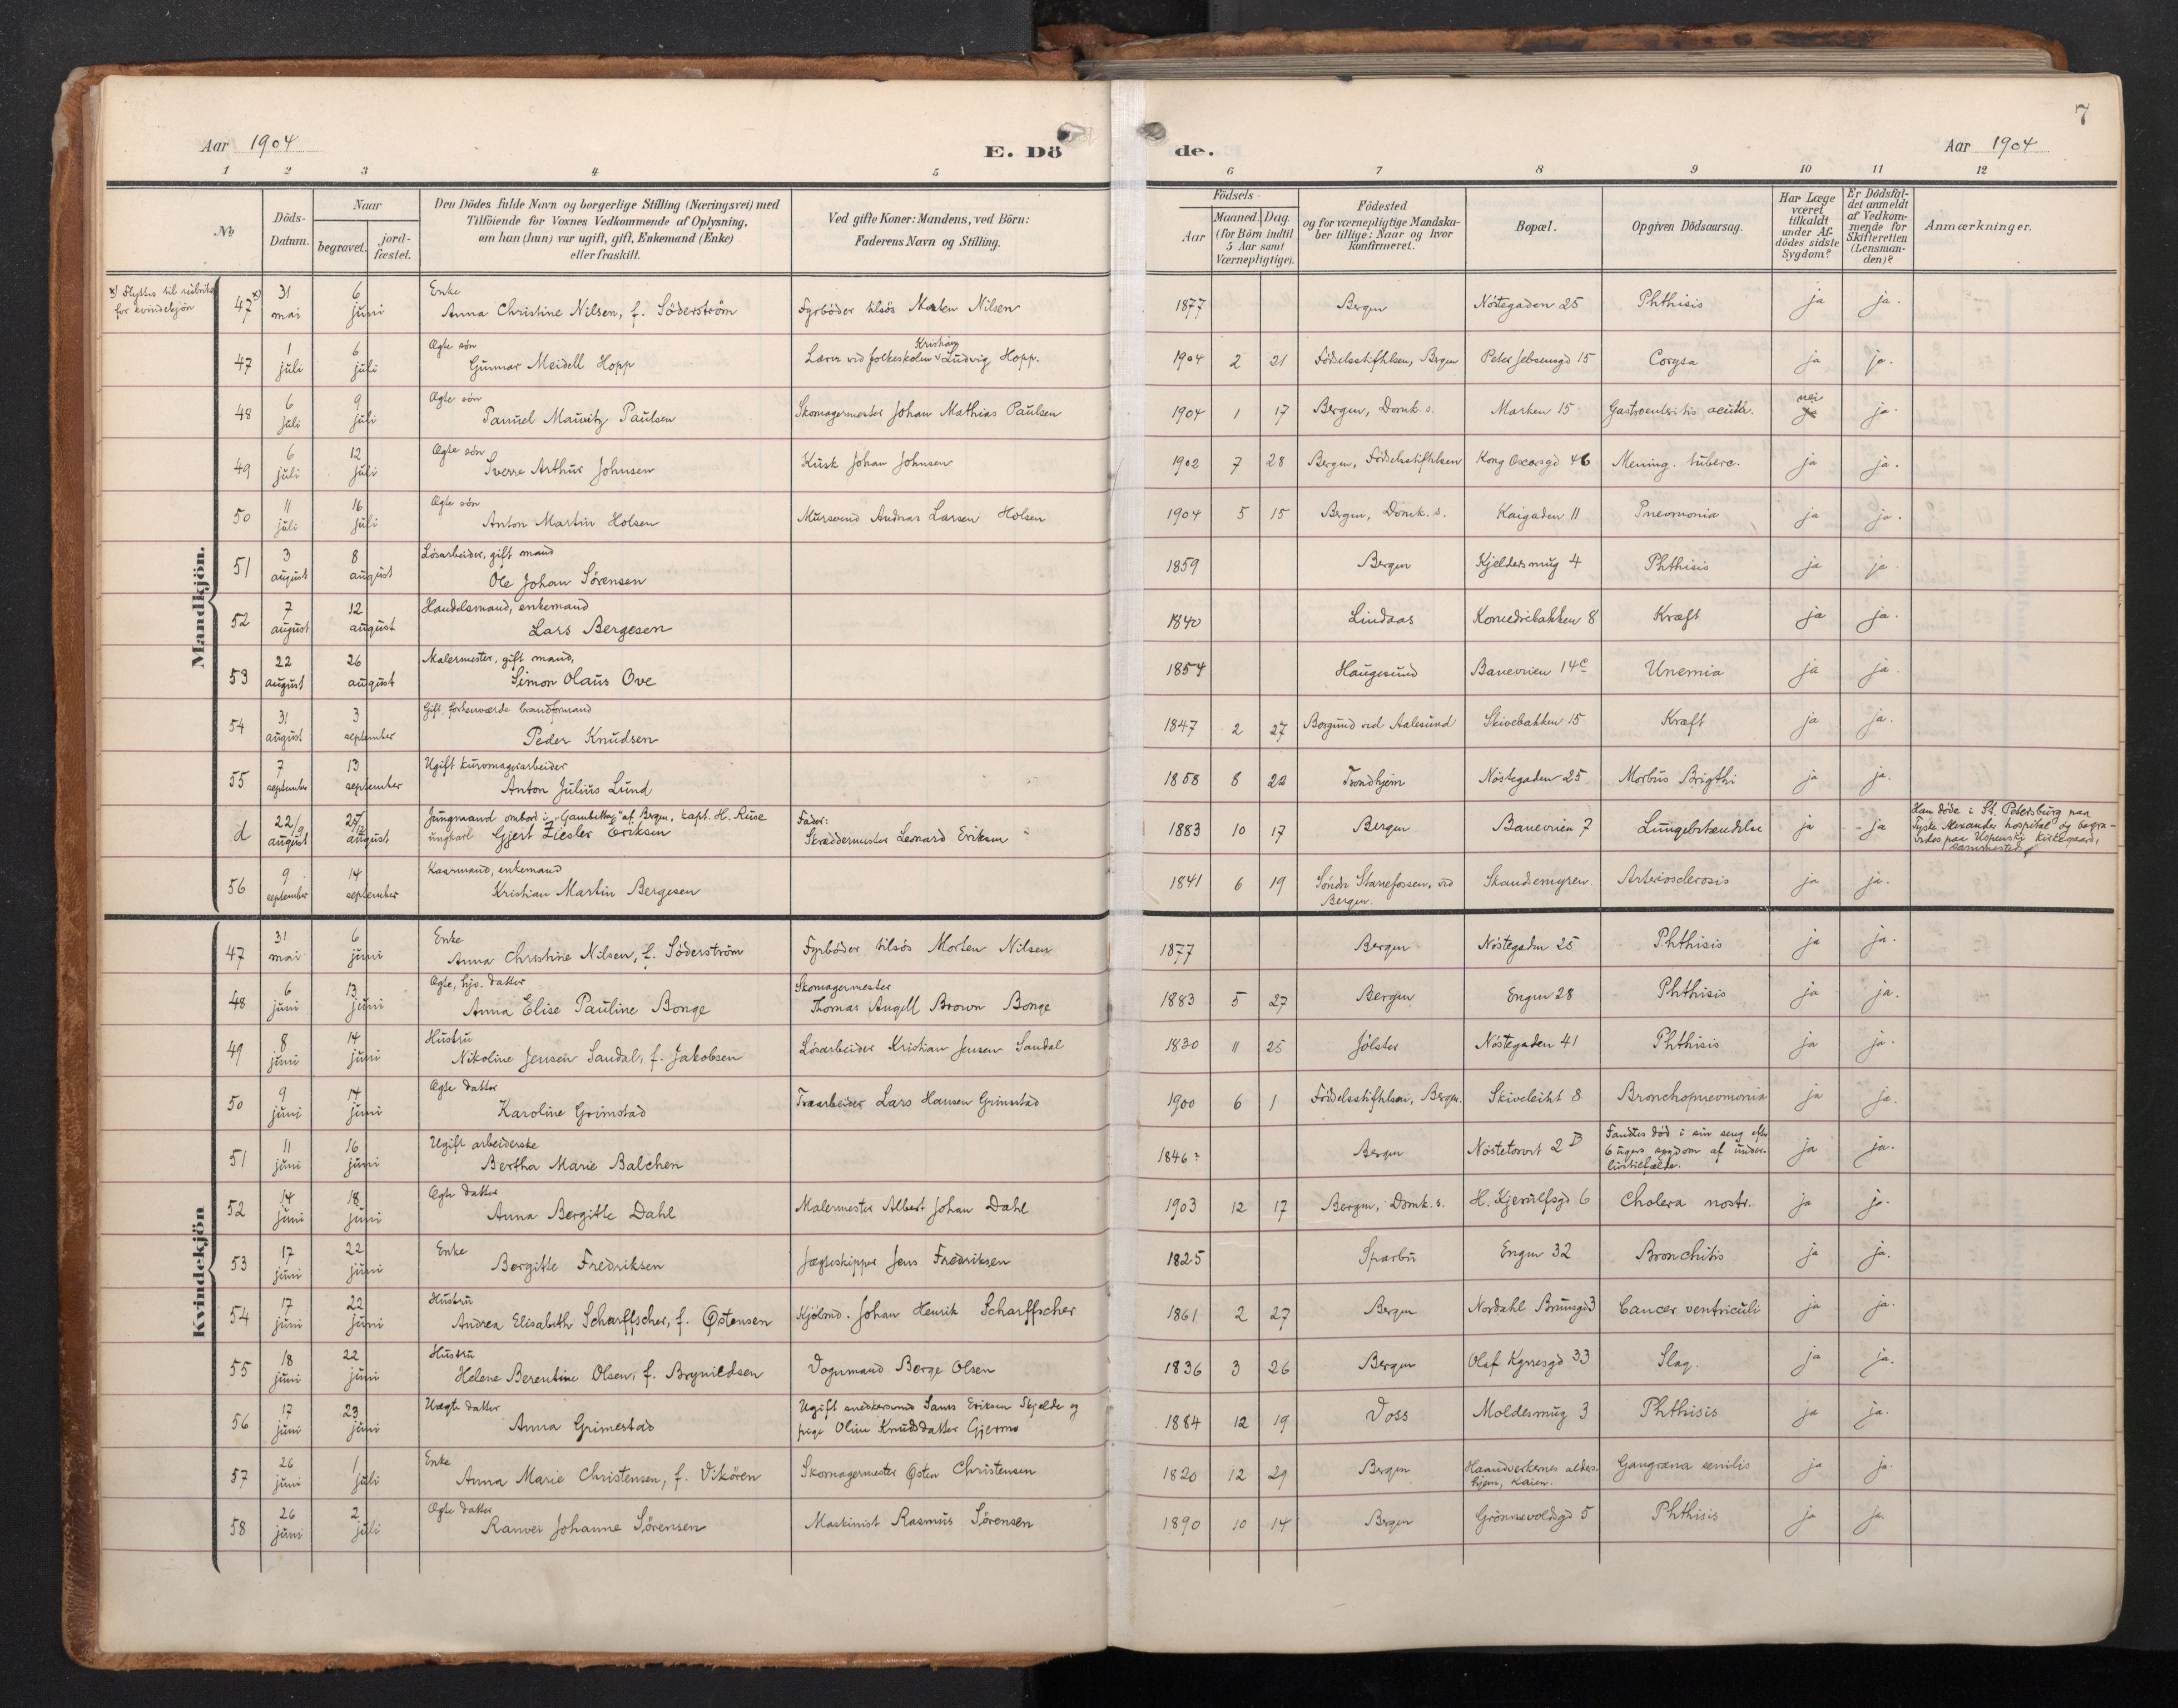 7
Aar 1904
E. Dö
de.
Aar 1904
1 2 3 4 5 6 7 8 9 10 11 12
No.
Döds-
Datum.
Naar
begravet.
jord-
fæstet.
Den Dödes fulde Navn og borgerlige Stilling (Næringsvei) med
Tilföiende for Voxnes Vedkommende af Oplysning,
om han (hun) var ugift, gift, Enkemand (Enke)
eller fraskilt.
Ved gifte Koner: Mandens, ved Börn:
Faderens Navn og Stilling.
Födsels-
Aar
Maaned. Dag.
(for Börn indtil
5 Aar samt
Værnepligtige).
Födested
og for værnepligtige Mandska-
ber tillige: Naar og hvor
konfirmeret.
Bopæl.
Opgiven Dödsaarsag.
Har Læge
været
tilkaldt
under Af-
dödes sidste
Sygdom?
Er Dödsfal-
det anmeldt
af Vedkom-
mende for
Skifteretten
(Lensman-
den)?
Anmærkninger.
Mandkjön.
x) Flyttes til rubriken
for kvindekjön
47 x) 31 mai 6 juni Enke
Anna Christine Nilsen, f. Söderström Fyrböder tilsös Morten Nilsen 1877 Bergen Nöstegaden 25 Phthisis ja ja.
47 1 juli 6 juli Ægte sön
Gunnar Meidell Hopp Lærer ved folkeskolen Kristian Ludvig Hopp. 1904 2 21 Födselsstiftelsen, Bergen Peter Jebsensgd 15 Coryza ja ja.
48 6 juli 9 juli Ægte sön
Samuel Mauritz Paulsen Skomagermester Johan Mathias Paulsen 1904 1 17 Bergen, Domk. s. Marken 15 Gastroenteritis acuta. nei ja ja.
49 6 juli 12 juli Ægte sön
Sverre Arthur Johnsen Kusk Johan Johnsen 1902 7 28 Bergen, Födselsstiftelsen Kong Oscarsgd 46 Mening. tuberc. ja ja.
50 11 juli 16 juli Ægte sön
Anton Martin Holsen Mursvend Andreas Larsen Holsen 1904 5 15 Bergen, Domk. s. Kaigaden 11 Pneomonia ja ja.
51 3 august 8 august Lösarbeider, gift mand
Ole Johan Sörensen 1859 Bergen Kjeldersmug 4 Phthisis ja ja
52 7 august 12 august Handelsmand, enkemand
Lars Bergesen 1840 Lindaas Komediebakken 8 Kræft ja ja.
53 22 august 26 august Malermester, gift mand,
Simon Olaus Ove 1854 Haugesund Baneveien 14 c Uremia ja ja.
54 31 august 3 september Gift, forhenværde brandformand
Peder Knudsen 1847 2 27 Borgund ved Aalesund Skivebakken 15 Kræft ja ja.
55 7 september 13 september Ugift kuromagerarbeider
Anton Julius Lund 1858 8 22 Trondhjem Nöstegaden 25 Morbus Brigthi ja ja.
d 22/9 august august Jungmand ombord i "Gambetta" af Bergen, kapt. H. Ruse
ungkarl Gjert Ziesler Eriksen Fader:
Skræddermester Leonard Eriksen 1883 10 17 Bergen Baneveien 7 Lungebetændelse ja ja Han döde i St. Petersburg paa
Tyske Alexander hospital og begra-
vedes paa Uspenski kirkegaard,
sammesteds
56 9 september 14 september Kaarmand, enkemand
Kristian Martin Bergesen 1841 6 19 Söndre Starefossen, ved
Bergen. Skandsemyren. Arteriosclerosis ja ja.
Kvindekjön
47 31 mai 6 juni Enke
Anna Christine Nilsen, f. Söderström Fyrböder tilsös Morten Nilsen 1877 Bergen Nöstegaden 25 Phthisis ja ja.
48 6 juni 13 juni Ægte, hjv. datter
Anna Elise Pauline Bonge Skomagermester
Thomas Angell Brown Bonge 1883 5 27 Bergen Engen 28 Phthisis ja ja.
49 8 juni 14 juni Hustru
Nikoline Jensen Sandal, f. Jakobsen Lösarbeider Kristian Jensen Sandal 1830 11 25 Jölster Nöstegaden 41 Phthisis ja ja.
50 9 juni 14 juni Ægte datter
Karoline Grimstad Træarbeider Lars Hansen Grimstad 1900 6 1 Födselsstiftelsen, Bergen. Skiveleiht 8 Bronchopneomonia ja ja.
51 11 juni 16 juni Ugift arbeiderske
Bertha Marie Balchen 1846? Bergen Nöstetorvt 2 B Fandtes död i sin seng efter
6 ugers sygdom af under-
livstilfælde. ja ja.
52 14 juni 18 juni Ægte datter
Anna Bergitte Dahl Malermester Albert Johan Dahl 1903 12 17 Bergen, Domk. s. H. Kjerulfsgd 6 Cholera nostr. ja ja.
53 17 juni 22 juni Enke
Bergitte Fredriksen Jægteskipper Jens Fredriksen 1825 Sparbu Engen 32 Bronchitis ja ja.
54 17 juni 22 juni Hustru
Andrea Elisabeth Scharffscher, f. Østensen Kjölmd. Johan Henrik Scharffscher 1861 2 27 Bergen Nordahl Brunsgd 3 Cancer ventriculi ja ja.
55 18 juni 22 juni Hustru
Helene Berentine Olsen, f. Brynildsen Vognmand Børge Olsen 1836 3 26 Bergen Olaf Kyrresgd 33 Slag. ja ja.
56 17 juni 23 juni Uægte datter
Anna Grimestad Ugift snedkersvend Eriksen Skjelde og
pige Oline Knudsdatter Gjerme 1884 12 19 Voss Moldesmug 3 Phthisis ja ja.
57 26 juni 1 juli Enke
Anna Marie Christensen, f. Vikören Skomagermester Østen Christensen 1820 12 29 Bergen Haandverkernes alders-
hjem, Kaien. Gangræna senilis ja ja.
58 26 juni 2 juli Ægte datter
Ranvei Johanne Sörensen Maskinist Rasmus Sörensen 1890 10 14 Bergen Grönnevoldsgd 5 Phthisis ja ja.